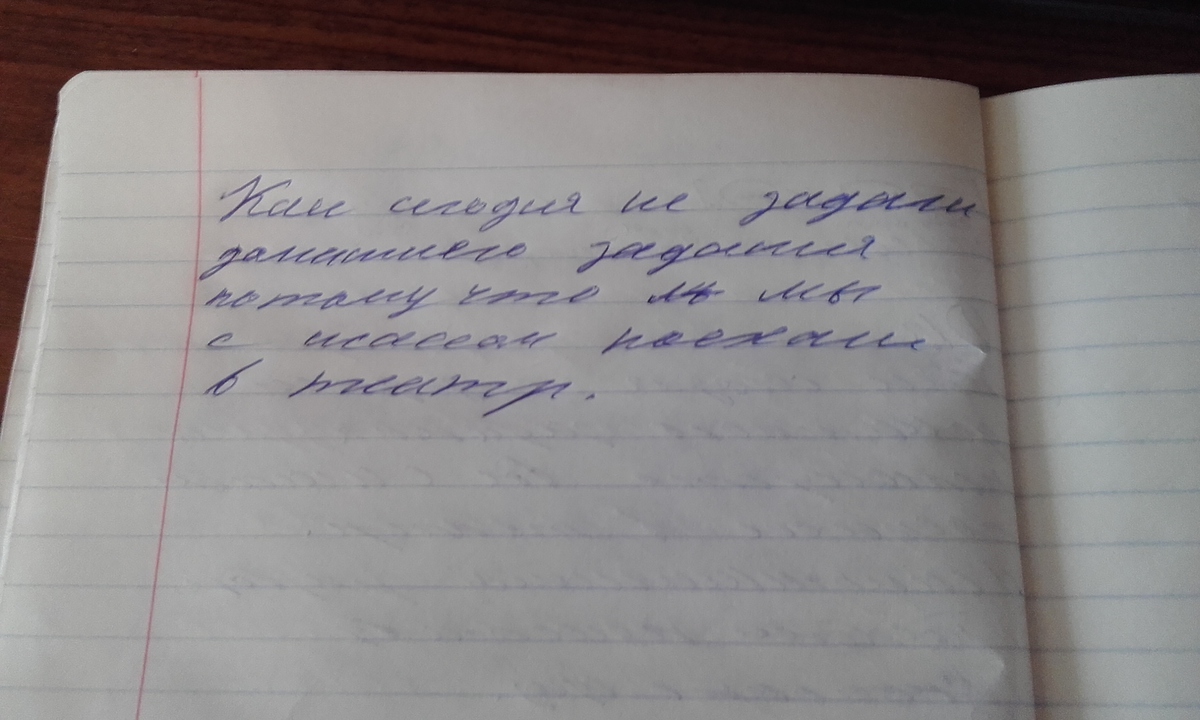 Нам сегодня не задали
домашнего задания
потому что мы
с классом поехали
в театр.